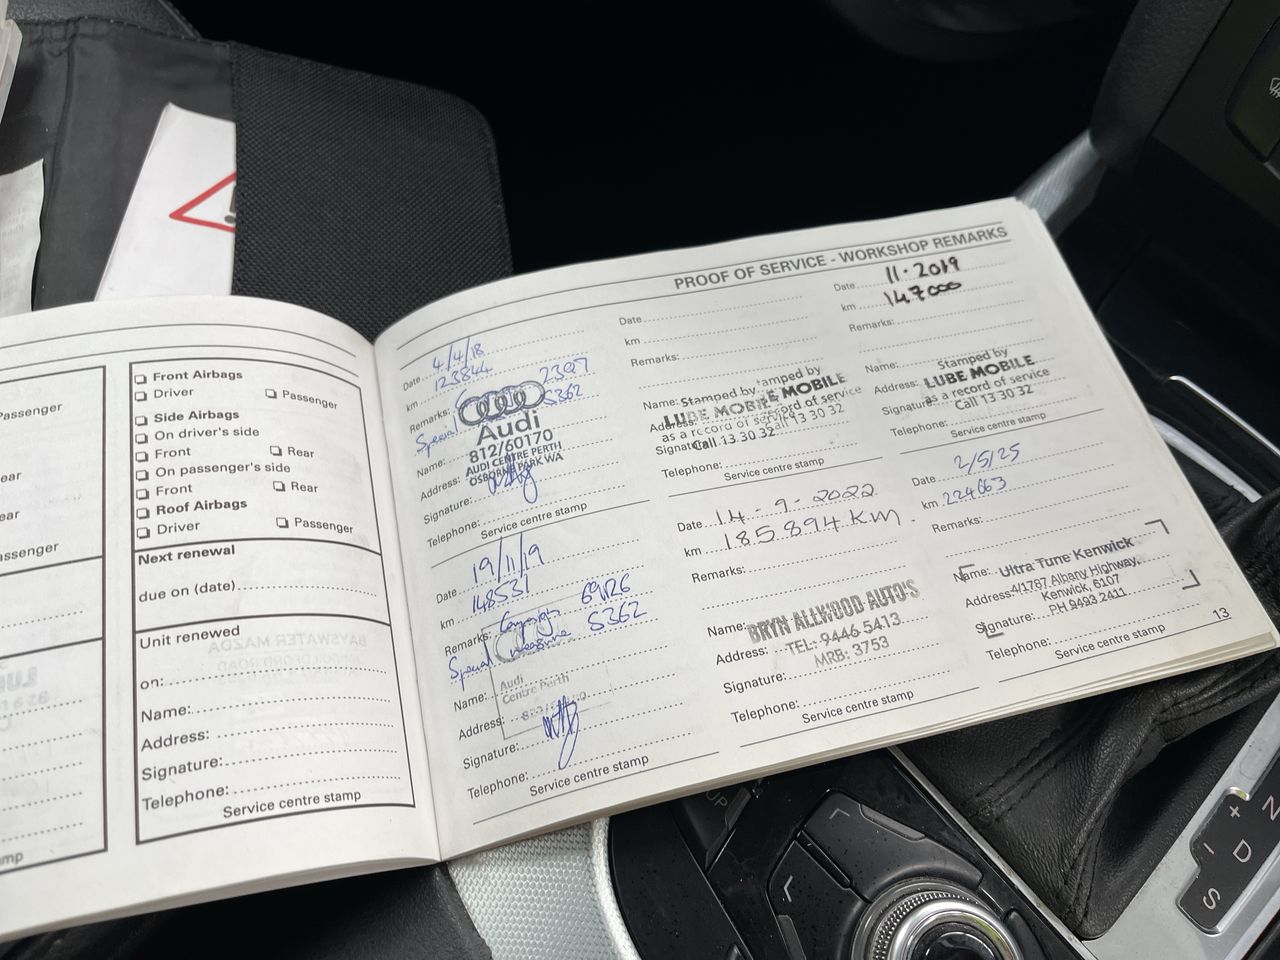 Passenger
ear
ear
Passenger
Front Airbags
Driver
Passenger
Side Airbags
On driver's side
Front
Rear
On passenger's side
Front
Rear
Roof Airbags
Driver
Passenger
Next renewal
due on (date)
Unit renewed
on:
Name:
Address:
Signature:
Telephone:
Service centre stamp
mp
PROOF OF SERVICE - WORKSHOP REMARKS
Date 4/4/18
km 123844
Remarks: 2397
Special S362
Audi
812/60170
AUDI CENTRE PERTH
OSBORNE PARK WA
Name:
Address:
Signature:
Telephone:
Service centre stamp
Date 19/11/19
km 148531
Remarks: Campaign 69126
Special measure S362
Name: Audi
Centre Perth
Address:
Signature:
Telephone:
Service centre stamp
Date
km
Remarks:
Name: Stamped by
Address: LUBE MOBILE
as a record of service
Signature: Call 13 30 32
Telephone:
Service centre stamp
Date 14-9-2022
km 185894 KM.
Remarks:
Name: BRYN ALLWOOD AUTO'S
Address: TEL: 9446 5413
MRB: 3753
Signature:
Telephone:
Service centre stamp
Date 11.2019
km 147000
Remarks:
Stamped by
Address: LUBE MOBILE
Signature: as a record of service
Call 13 30 32
Telephone:
Service centre stamp
Date 2/5/25
km 224663
Remarks:
Name: Ultra Tune Kenwick
Address: 4/1787 Albany Highway,
Kenwick, 6107
Signature: PH 9493 2411
Telephone:
Service centre stamp
13
UP
+
-
N
D
S